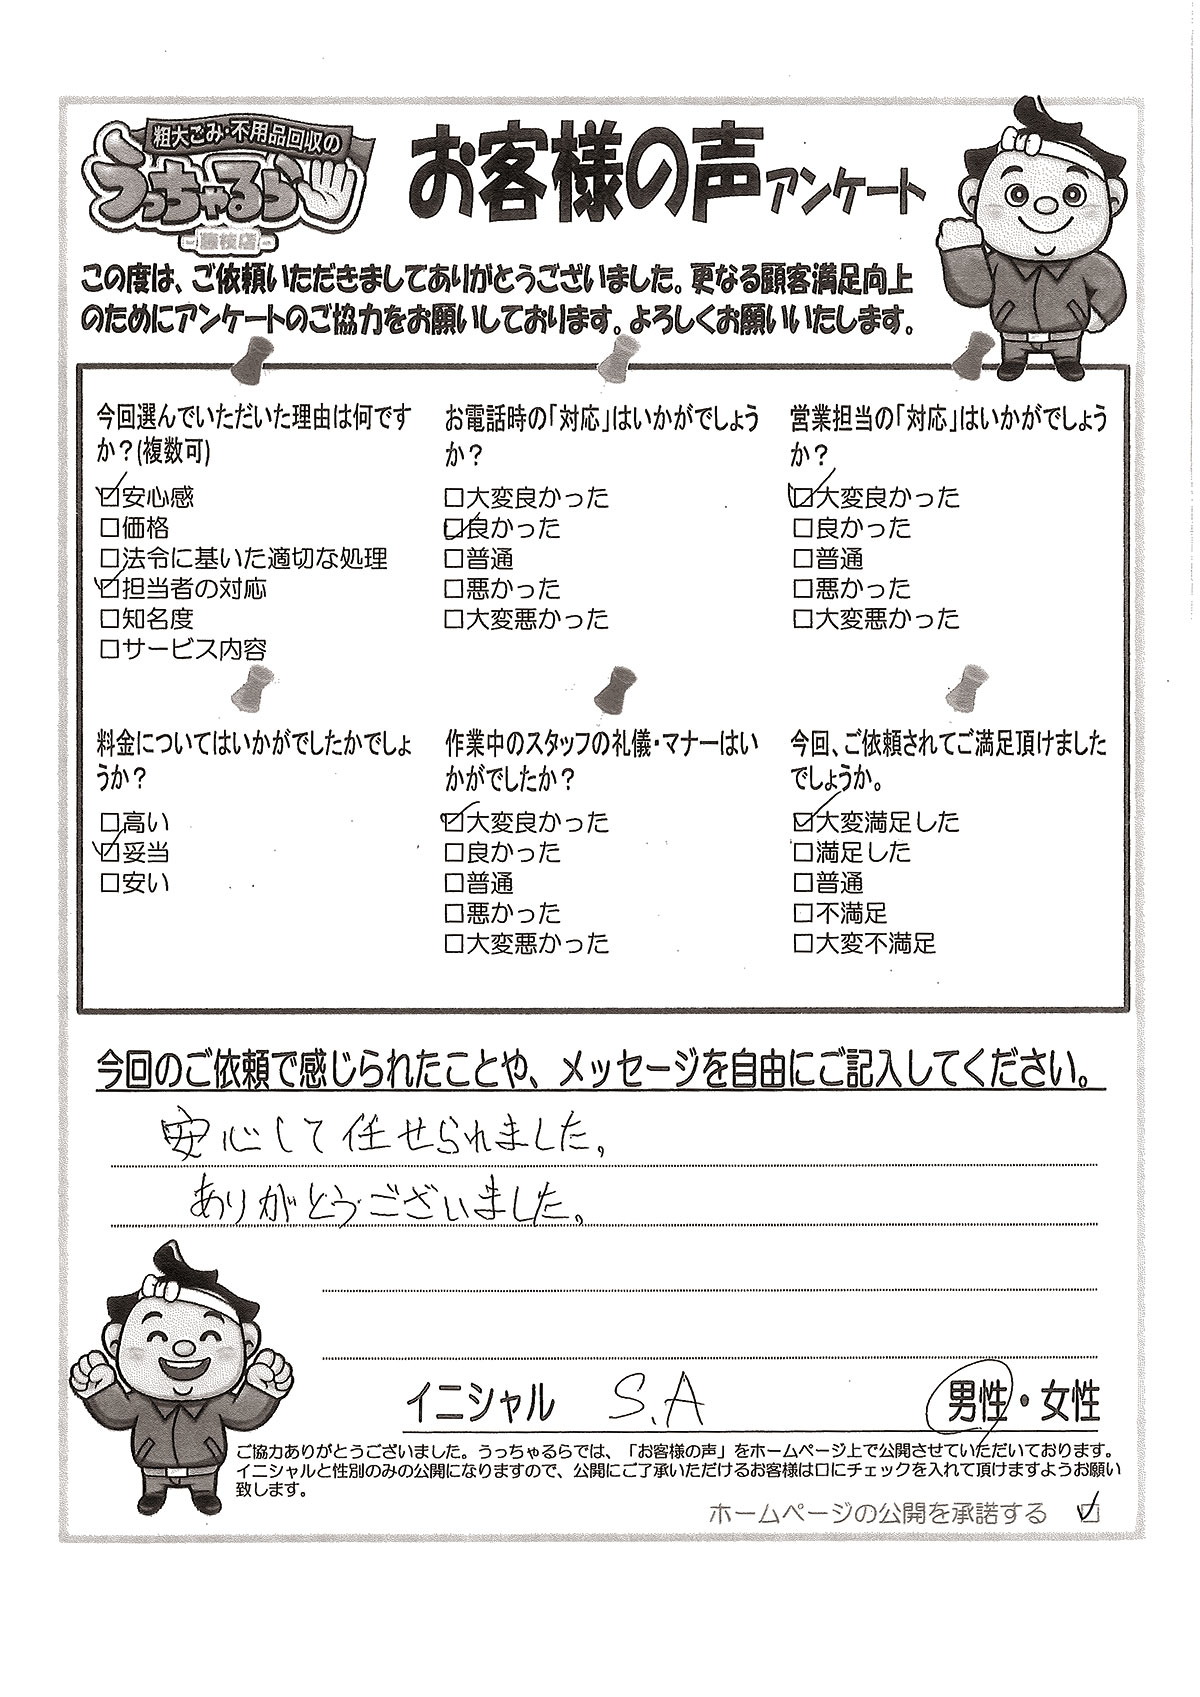 粗大ごみ・不用品回収の
うっちゃるら
お客様の声アンケート
この度は、ご依頼いただきましてありがとうございました。更なる顧客満足向上
のためにアンケートのご協力をお願いしております。よろしくお願いいたします。
今回選んでいただいた理由は何です
か?(複数可)
☑安心感
□価格
□法令に基いた適切な処理
☑担当者の対応
□知名度
□サービス内容
お電話時の「対応」はいかがでしょう
か?
□大変良かった
☑良かった
□普通
□悪かった
□大変悪かった
営業担当の「対応」はいかがでしょう
か?
☑大変良かった
□良かった
□普通
□悪かった
□大変悪かった
料金についてはいかがでしたかでしょ
うか?
□高い
☑妥当
□安い
作業中のスタッフの礼儀・マナーはい
かがでしたか?
☑大変良かった
□良かった
□普通
□悪かった
□大変悪かった
今回、ご依頼されてご満足頂けました
でしょうか。
☑大変満足した
□満足した
□普通
□不満足
□大変不満足
今回のご依頼で感じられたことや、メッセージを自由にご記入してください。
安心して任せられました。
ありがとうございました。
イニシャル S.A 男性・女性
ご協力ありがとうございました。うっちゃるらでは、「お客様の声」をホームページ上で公開させていただいております。
イニシャルと性別のみの公開になりますので、公開にご了承いただけるお客様は口にチェックを入れて頂けますようお願い
致します。
ホームページの公開を承諾する ☑